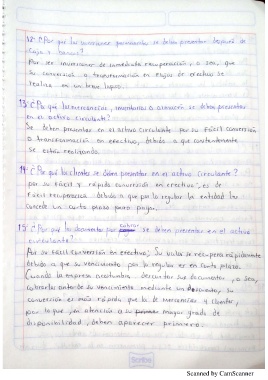 12.- ¿Por qué las inversiones se deben presentar después de
Caja y bancos?
Por ser inversiones de inmediata recuperación, o sea, que
su conversión o transformación en flujos de efectivo se
realiza en un breve lapso.
13.- ¿Por qué las mercancías, inventarios o almacén se deben presentar
en el activo circulante?
Se deben presentar en el activo circulante por su fácil conversión
o transformación en efectivo, debido a que constantemente
se están realizando.
14.- ¿Por qué los clientes se deben presentar en el activo circulante?
por su fácil y rápida conversión en efectivo, es de
fácil recuperación debido a que por lo regular la entidad les
concede un corto plazo para pagar.
15.- ¿Por qué los documentos por cobrar se deben presentar en el activo
circulante?
Por su fácil conversión en efectivo, su valor se recupera rápidamente
debido a que su vencimiento por lo regular es en corto plazo.
Cuando la empresa acostumbra descontar sus documentos, o sea,
cobrarlos antes de su vencimiento mediante un descuento, su
conversión es más rápida que la de mercancías y clientes,
por lo que, en atención a su mayor grado de
disponibilidad, deben aparecer primero.
Scribe
Scanned by CamScanner